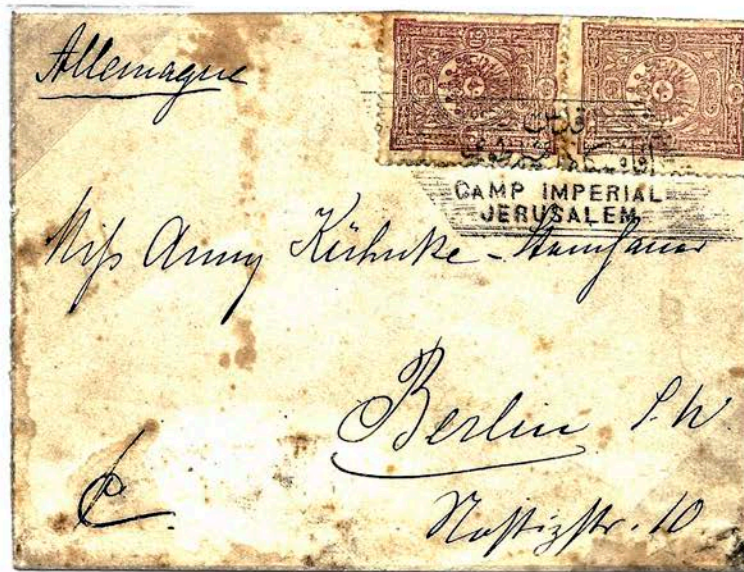 Allemagne
10 10
CAMP IMPERIAL
JERUSALEM
Miss Anny Kühnke-
Berlin S.W.
Nostizstr. 10